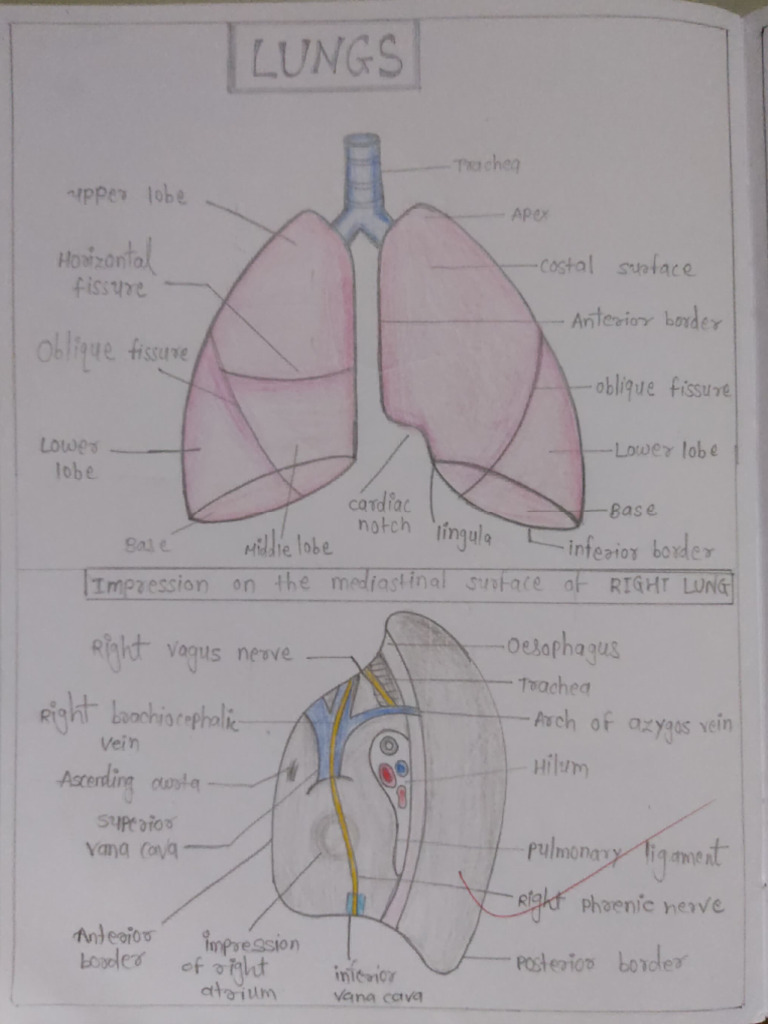 LUNGS
Trachea
Upper lobe
Apex
Horizontal
fissure
Costal surface
Anterior border
Oblique fissure
oblique fissure
Lower
lobe
Lower lobe
cardiac
notch
Base
Base
Middle lobe
lingula
inferior border
Impression on the mediastinal surface of RIGHT LUNG
Right vagus nerve
Oesophagus
Trachea
Right brachiocephalic
vein
Arch of azygos vein
Ascending aorta
Hilum
Superior
vana cava
Pulmonary ligament
Right Phrenic nerve
Anterior
border
impression
of right
atrium
inferior
vana cava
Posterior border